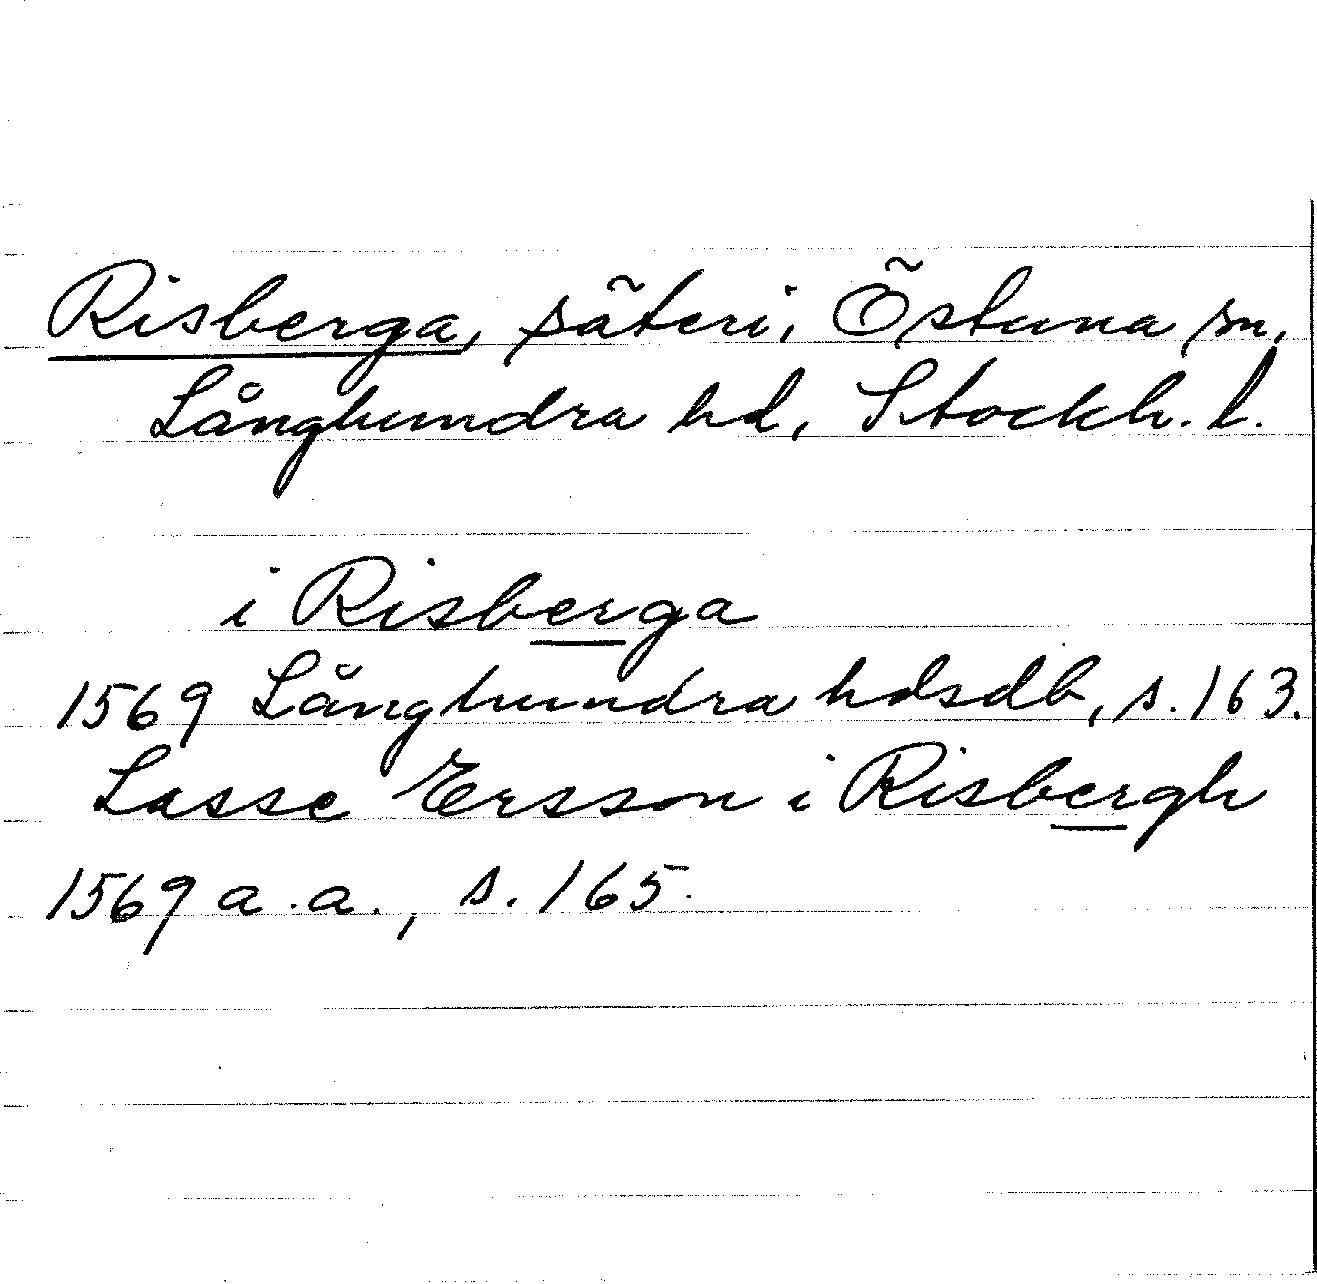 Risberga, säteri, Östuna sn,
Långhundra hd, Stockh. l.
i Risberga
1569 Långhundra hdsdb, s. 163.
Lasse Ersson i Risbergh
1569 a.a., s. 165.